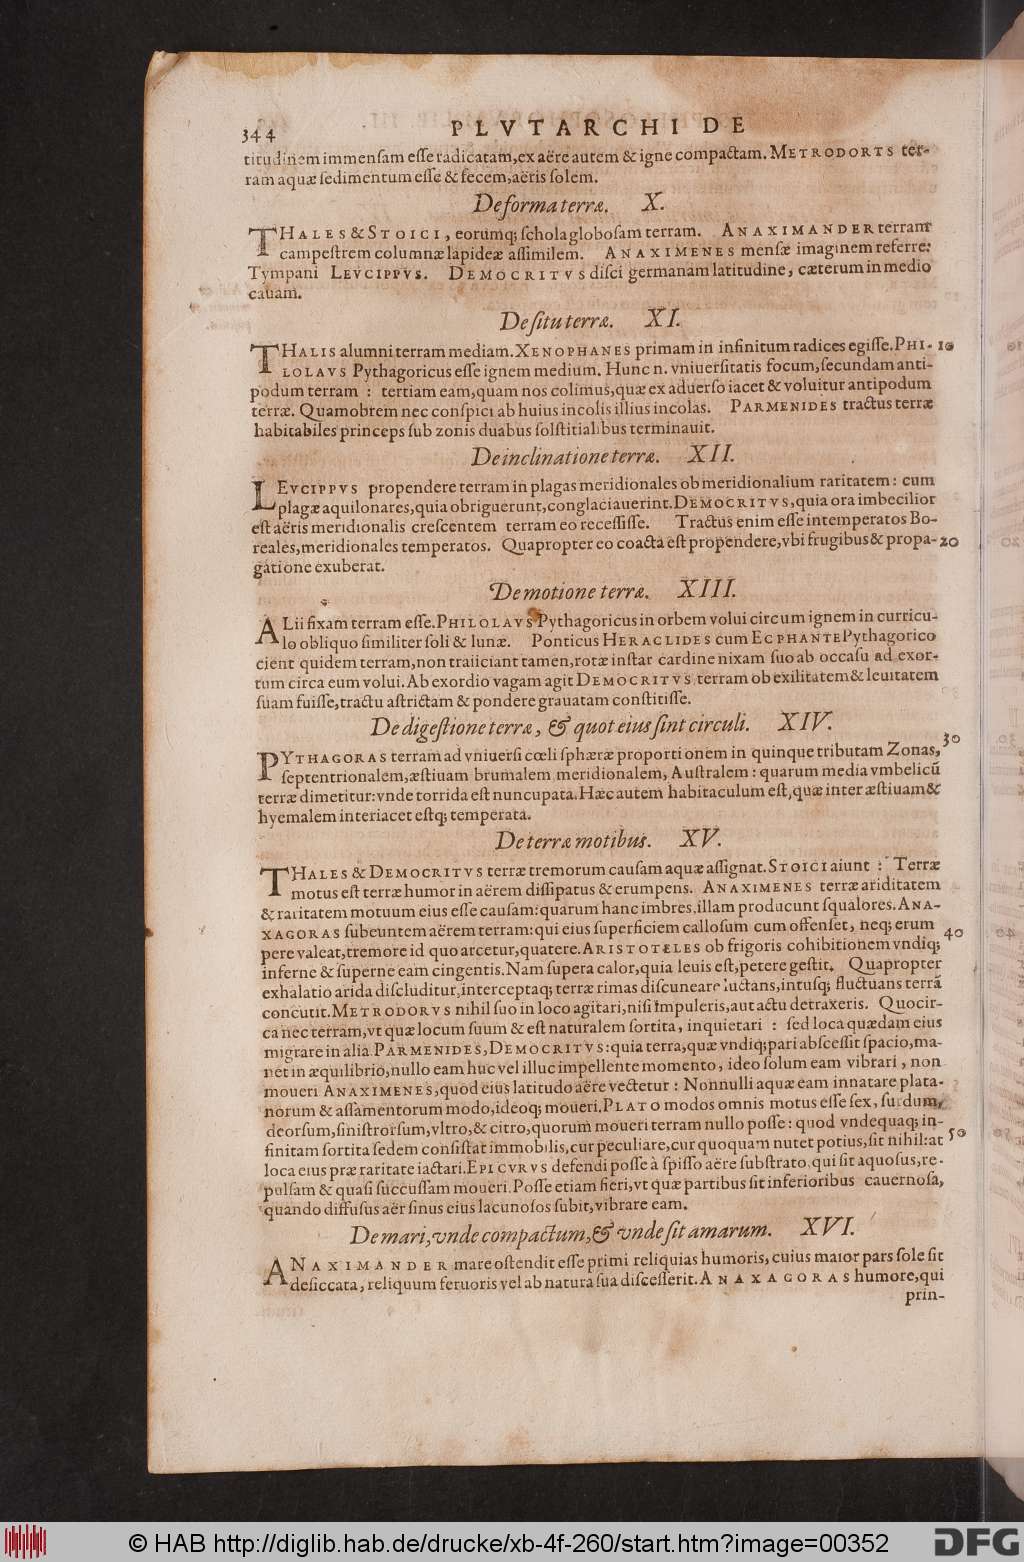 344 PLVTARCHI DE
titudinem immensam esse radicatam, ex aëre autem & igne compactam. METRODORTS ter-
ram aquæ sedimentum esse & fecem, aëris solem.
De forma terræ. X.
THALES & STOICI, eorumq; schola globosam terram. ANAXIMANDER terram
campestrem columnæ lapideæ assimilem. ANAXIMENES mensæ imaginem referre:
Tympani LEVCIPPVS. DEMOCRITVS disci germanam latitudine, cæterum in medio
cavam.
De situ terræ. XI.
THALIS alumni terram mediam. XENOPHANES primam in infinitum radices egisse. PHI- 10
LOLAVS Pythagoricus esse ignem medium. Hunc n. vniuersitatis focum, secundam anti-
podum terram : tertiam eam, quam nos colimus, quæ ex aduerso iacet & voluitur antipodum
terræ. Quamobrem nec conspici ab huius incolis illius incolas. PARMENIDES tractus terræ
habitabiles princeps sub zonis duabus solstitialibus terminauit.
De inclinatione terræ. XII.
LEVCIPPVS propendere terram in plagas meridionales ob meridionalium raritatem : cum
plagæ aquilonares, quia obriguerunt, conglaciauerint. DEMOCRITVS, quia ora imbecilior
est aëris meridionalis crescentem terram eo recessisse. Tractus enim esse intemperatos Bo-
reales, meridionales temperatos. Quapropter eo coacta est propendere, vbi frugibus & propa- 20
gatione exuberat.
De motione terræ. XIII.
ALii fixam terram esse. PHILOLAVS Pythagoricus in orbem volui circum ignem in curricu-
lo obliquo similiter soli & lunæ. Ponticus HERACLIDES cum ECPHANTE Pythagorico
cient quidem terram, non traiiciant tamen, rotæ instar cardine nixam suo ab occasu ad exor-
tum circa eum volui. Ab exordio vagam agit DEMOCRITVS terram ob exilitatem & leuitatem
suam fuisse, tractu astrictam & pondere grauatam constitisse.
De digestione terræ, & quot eius sint circuli. XIV.
PYTHAGORAS terram ad vniuersi cœli sphæræ proportionem in quinque tributam Zonas, 30
septentrionalem, æstiuam brumalem meridionalem, Australem : quarum media vmbelicũ
terræ dimetitur: vnde torrida est nuncupata. Hæc autem habitaculum est, quæ inter æstiuam &
hyemalem interiacet estq; temperata.
De terræ motibus. XV.
THALES & DEMOCRITVS terræ tremorum causam aquæ assignat. STOICI aiunt : Terræ
motus est terræ humor in aërem dissipatus & erumpens. ANAXIMENES terræ ariditatem
& raritatem motuum eius esse causam: quarum hanc imbres, illam producunt squalores. ANA-
XAGORAS subeuntem aërem terram: qui eius superficiem callosum cum offenset, neq; erum 40
pere valeat, tremore id quo arcetur, quatere. ARISTOTELES ob frigoris cohibitionem vndiq;
inferne & superne eam cingentis. Nam supera calor, quia leuis est, petere gestit. Quapropter
exhalatio arida discluditur, interceptaq; terræ rimas discuneare luctans, intusq; fluctuans terrã
concutit. METRODORVS nihil suo in loco agitari, nisi impuleris, aut actu detraxeris. Quocir-
ca nec terram, vt quæ locum suum & est naturalem sortita, inquietari : sed loca quædam eius
migrare in alia PARMENIDES, DEMOCRITVS: quia terra, quæ vndiq; pari abscessit spacio, ma-
net in æquilibrio, nullo eam huc vel illuc impellente momento, ideo solum eam vibrari, non
moueri ANAXIMENES, quod eius latitudo aëre vectetur : Nonnulli aquæ eam innatare plata-
norum & assamentorum modo, ideoq; moueri. PLATO modos omnis motus esse sex, sursum,
deorsum, sinistrorsum, vltro, & citro, quorum moueri terram nullo posse : quod vndequaq; in- 50
finitam sortita sedem consistat immobilis, cur peculiare, cur quoquam nutet potius, sit nihil: at
loca eius præ raritate iactari. EPICVRVS defendi posse à spisso aëre substrato, qui sit aquosus, re-
pulsam & quasi succussam moueri. Posse etiam fieri, vt quæ partibus sit inferioribus cauernosa,
quando diffusus aër sinus eius lacunosos subit, vibrare eam.
De mari, vnde compactum, & vnde sit amarum. XVI.
ANAXIMANDER mare ostendit esse primi reliquias humoris, cuius maior pars sole sit
desiccata, reliquum feruoris vel ab natura sua discesserit. ANAXAGORAS humore, qui
prin-
© HAB http://diglib.hab.de/drucke/xb-4f-260/start.htm?image=00352 DFG